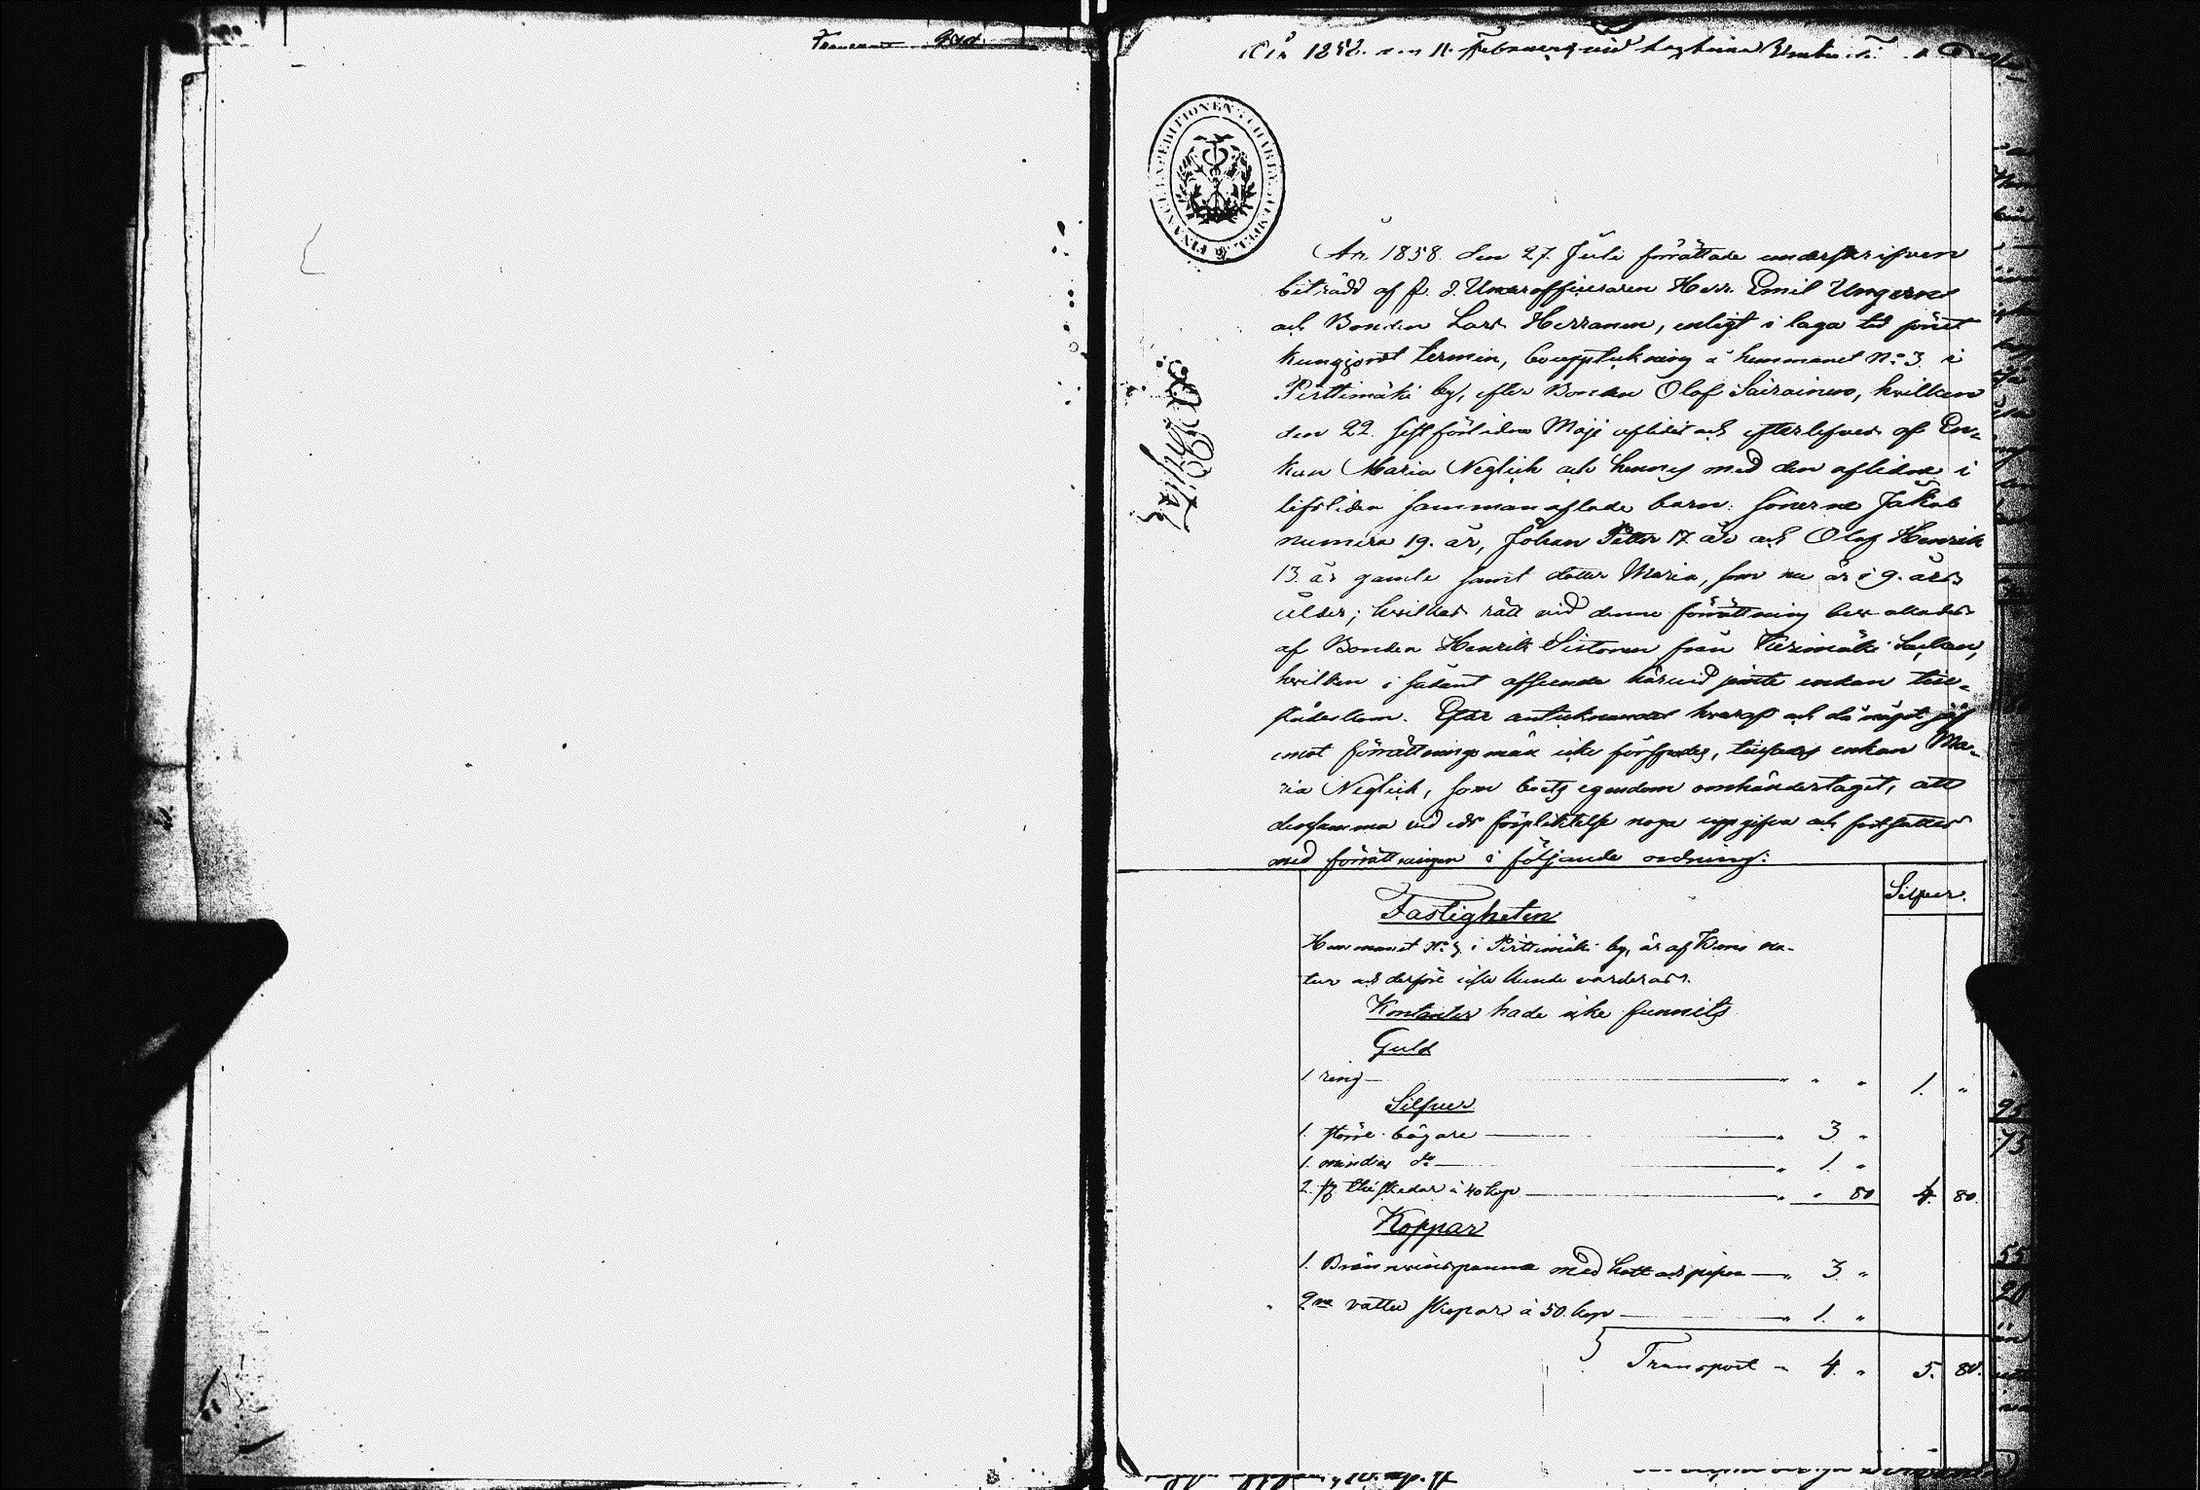 År 1858. den 11. Februarij vid lagtima
FINANCE EXPEDITIONENS CHARTÆ STEMPEL
År 1858. den 27. Juli förrättade underskrifven
biträdd af f. d. Underofficeraren Herr Emil Ungern
och Bonden Lars Herranen, enligt i laga tid förut
kungjordt termin, bouppteckning å hemmanet No 3 i
Pirttimäki by, efter Bonden Olof Sairainen, hvilken
den 22. sistförlidne Maji aflidit och efterlefves af En-
kan Maria Neglick och hennes med den aflidne i
lifstiden sammanaflade barn: sönerne Jakob
numera 19. år, Johan Petter 17 år och Olof Henrik
13. år gamle samt dotter Maria, som nu är i 9. års
ålder; hvilkas rätt vid denne förrättning bevakades
af Bonden Henrik Sistonen från Kerimäki Socken,
hvilken i sådant afseende härvid jemte enkan till-
städeskom. Efter antecknandet hvaraf och då något jäf
emot förrättningsmän icke förspordes, tillsades enkan Ma-
ria Neglick, som boets egendom omhändertagit, att
densamma vid eds förpliktelse noga uppgifva och fortsattes
med förrättningen i följande ordning:
Silfver.
Fastigheten
Hemmanet No 3 i Pirttimäki by, är af Krono na-
tur och derföre icke kunde värderas.
Kontanter hade icke funnits
Guld
1 ring — " " 1. "
Silfver
1. större bägare — " 3 "
1. mindre do — " 1. "
2. st theskedar à 40 kop — " " 80 4. 80.
Koppar
1. Brännvinspanna med hatt och pipor — " 3 "
2ne vatten skopor à 50. kop — " 1. "
Transport " 4. " 5. 80.